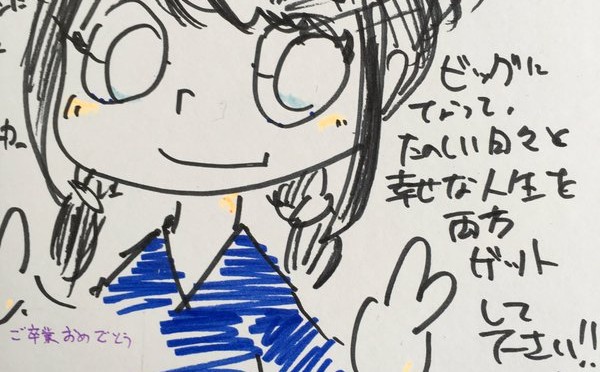 ビッグに
なって、
たのしい日々と
幸せな人生を
両方
ゲット
して
下さい!!
ご卒業おめでとう